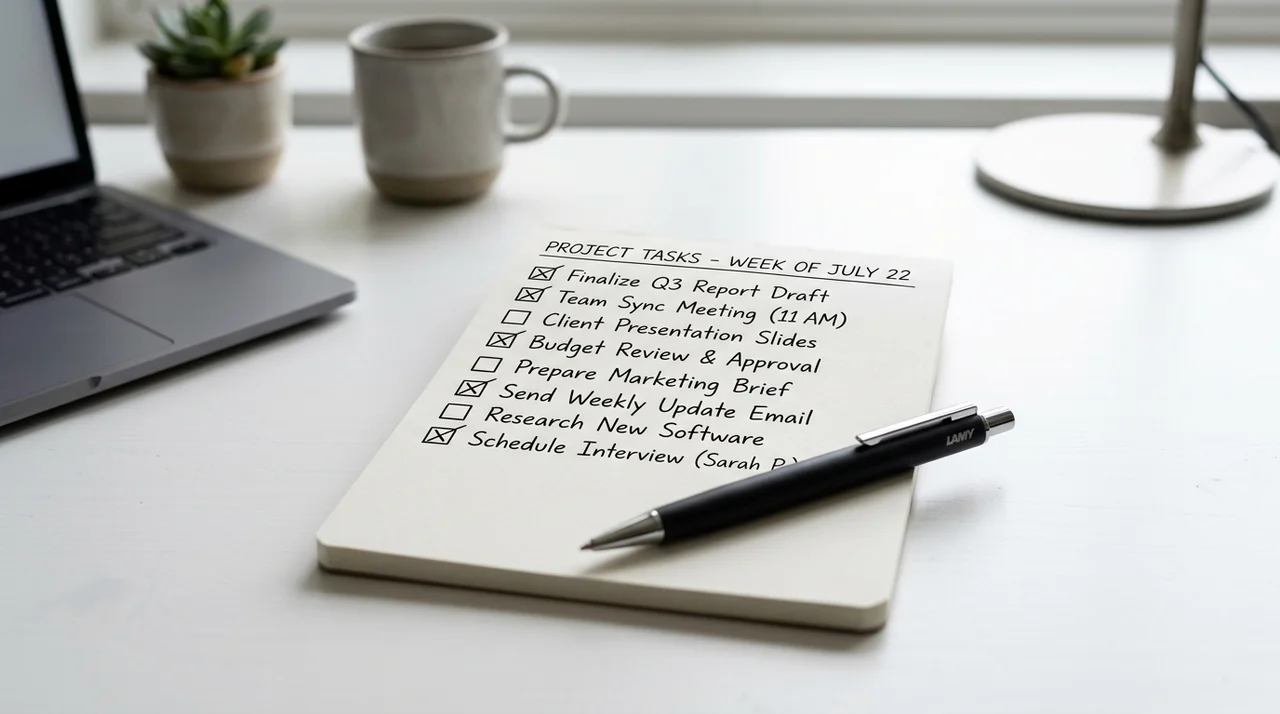 PROJECT TASKS - WEEK OF JULY 22
Finalize Q3 Report Draft
Team Sync Meeting (11 AM)
Client Presentation Slides
Budget Review & Approval
Prepare Marketing Brief
Send Weekly Update Email
Research New Software
Schedule Interview (Sarah P.)
LAMY